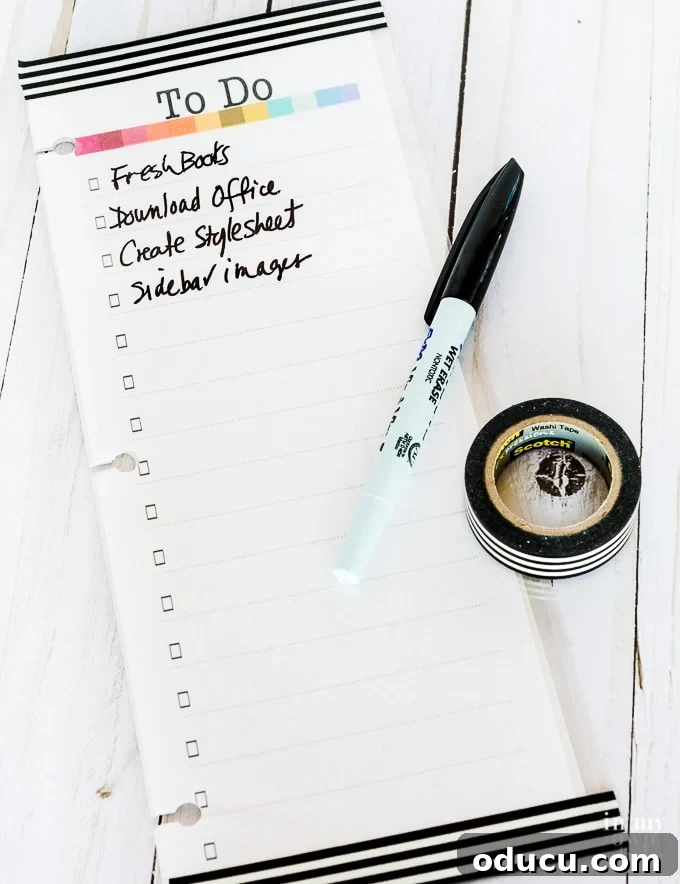 To Do
FreshBooks
Download Office
Create Stylesheet
Sidebar images
WET ERASE
NONTOXIC
Washi Tape
Scotch
in my
oducu.com